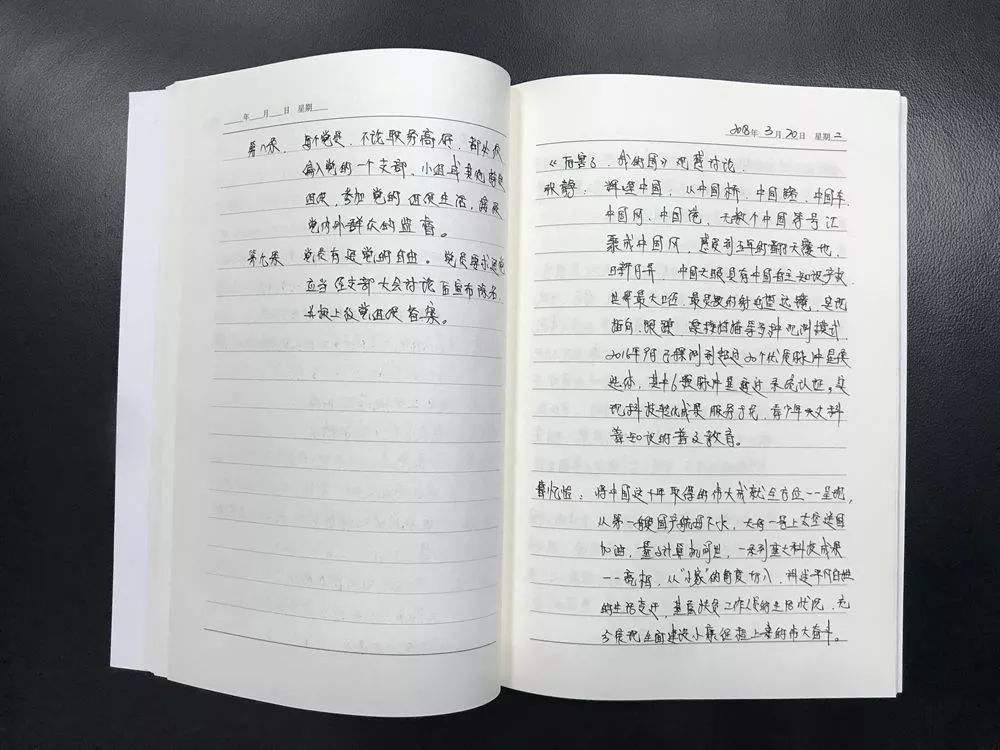 年 月 日 星期
第八条、每个党员,不论职务高低,都必须
编入党的一个支部、小组或其他特定
组织,参加党的组织生活,接受
党内外群众的监督。
第九条 党员有退党的自由。党员要求退党
应当经支部大会讨论后宣布除名,
并报上级党组织备案。
2018年 3月 20日 星期二
《厉害了,我的国》观感讨论.
辉煌中国,从中国桥、中国路、中国车、
中国网、中国港,无数个中国符号汇
聚成中国风,感受到五年的翻天覆地,
日新月异 中国天眼具有中国自主知识产权
世界最大口径、最灵敏的射电望远镜,
巡天、跟踪、等多种观测模式.
2016年9月已探测到超过20个优质脉冲星候
选体,其中6颗脉冲星通过系统认证。
现科技转化成果服务于民,青少年天文科
普知识的普及教育。
将中国这十年取得的伟大成就全方位一一呈现,
从第一艘国产航母下水,天舟一号上太空送国
加油,量子计算机问世,一系列重大科技成果
一一亮相,从"小家"的角度切入,讲述平凡百姓
的生活变迁,基层扶贫工作人员的生活状况,充
分展现全面建设小康征程上来的伟大奋斗。